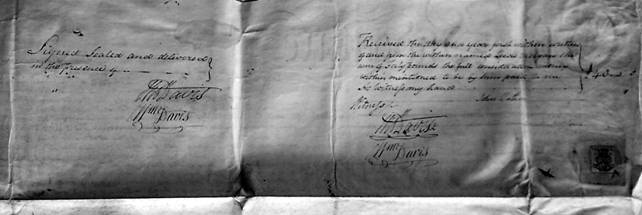 Signed Sealed and delivered
in the presence of
Thos Davis
Wm Davis
Received the day and year first within written
of and from the within named
sum of Sixty pounds the full consideration money
within mentioned to be by him paid to me
As witness my hand
Witness
Thos Davis
Wm Davis